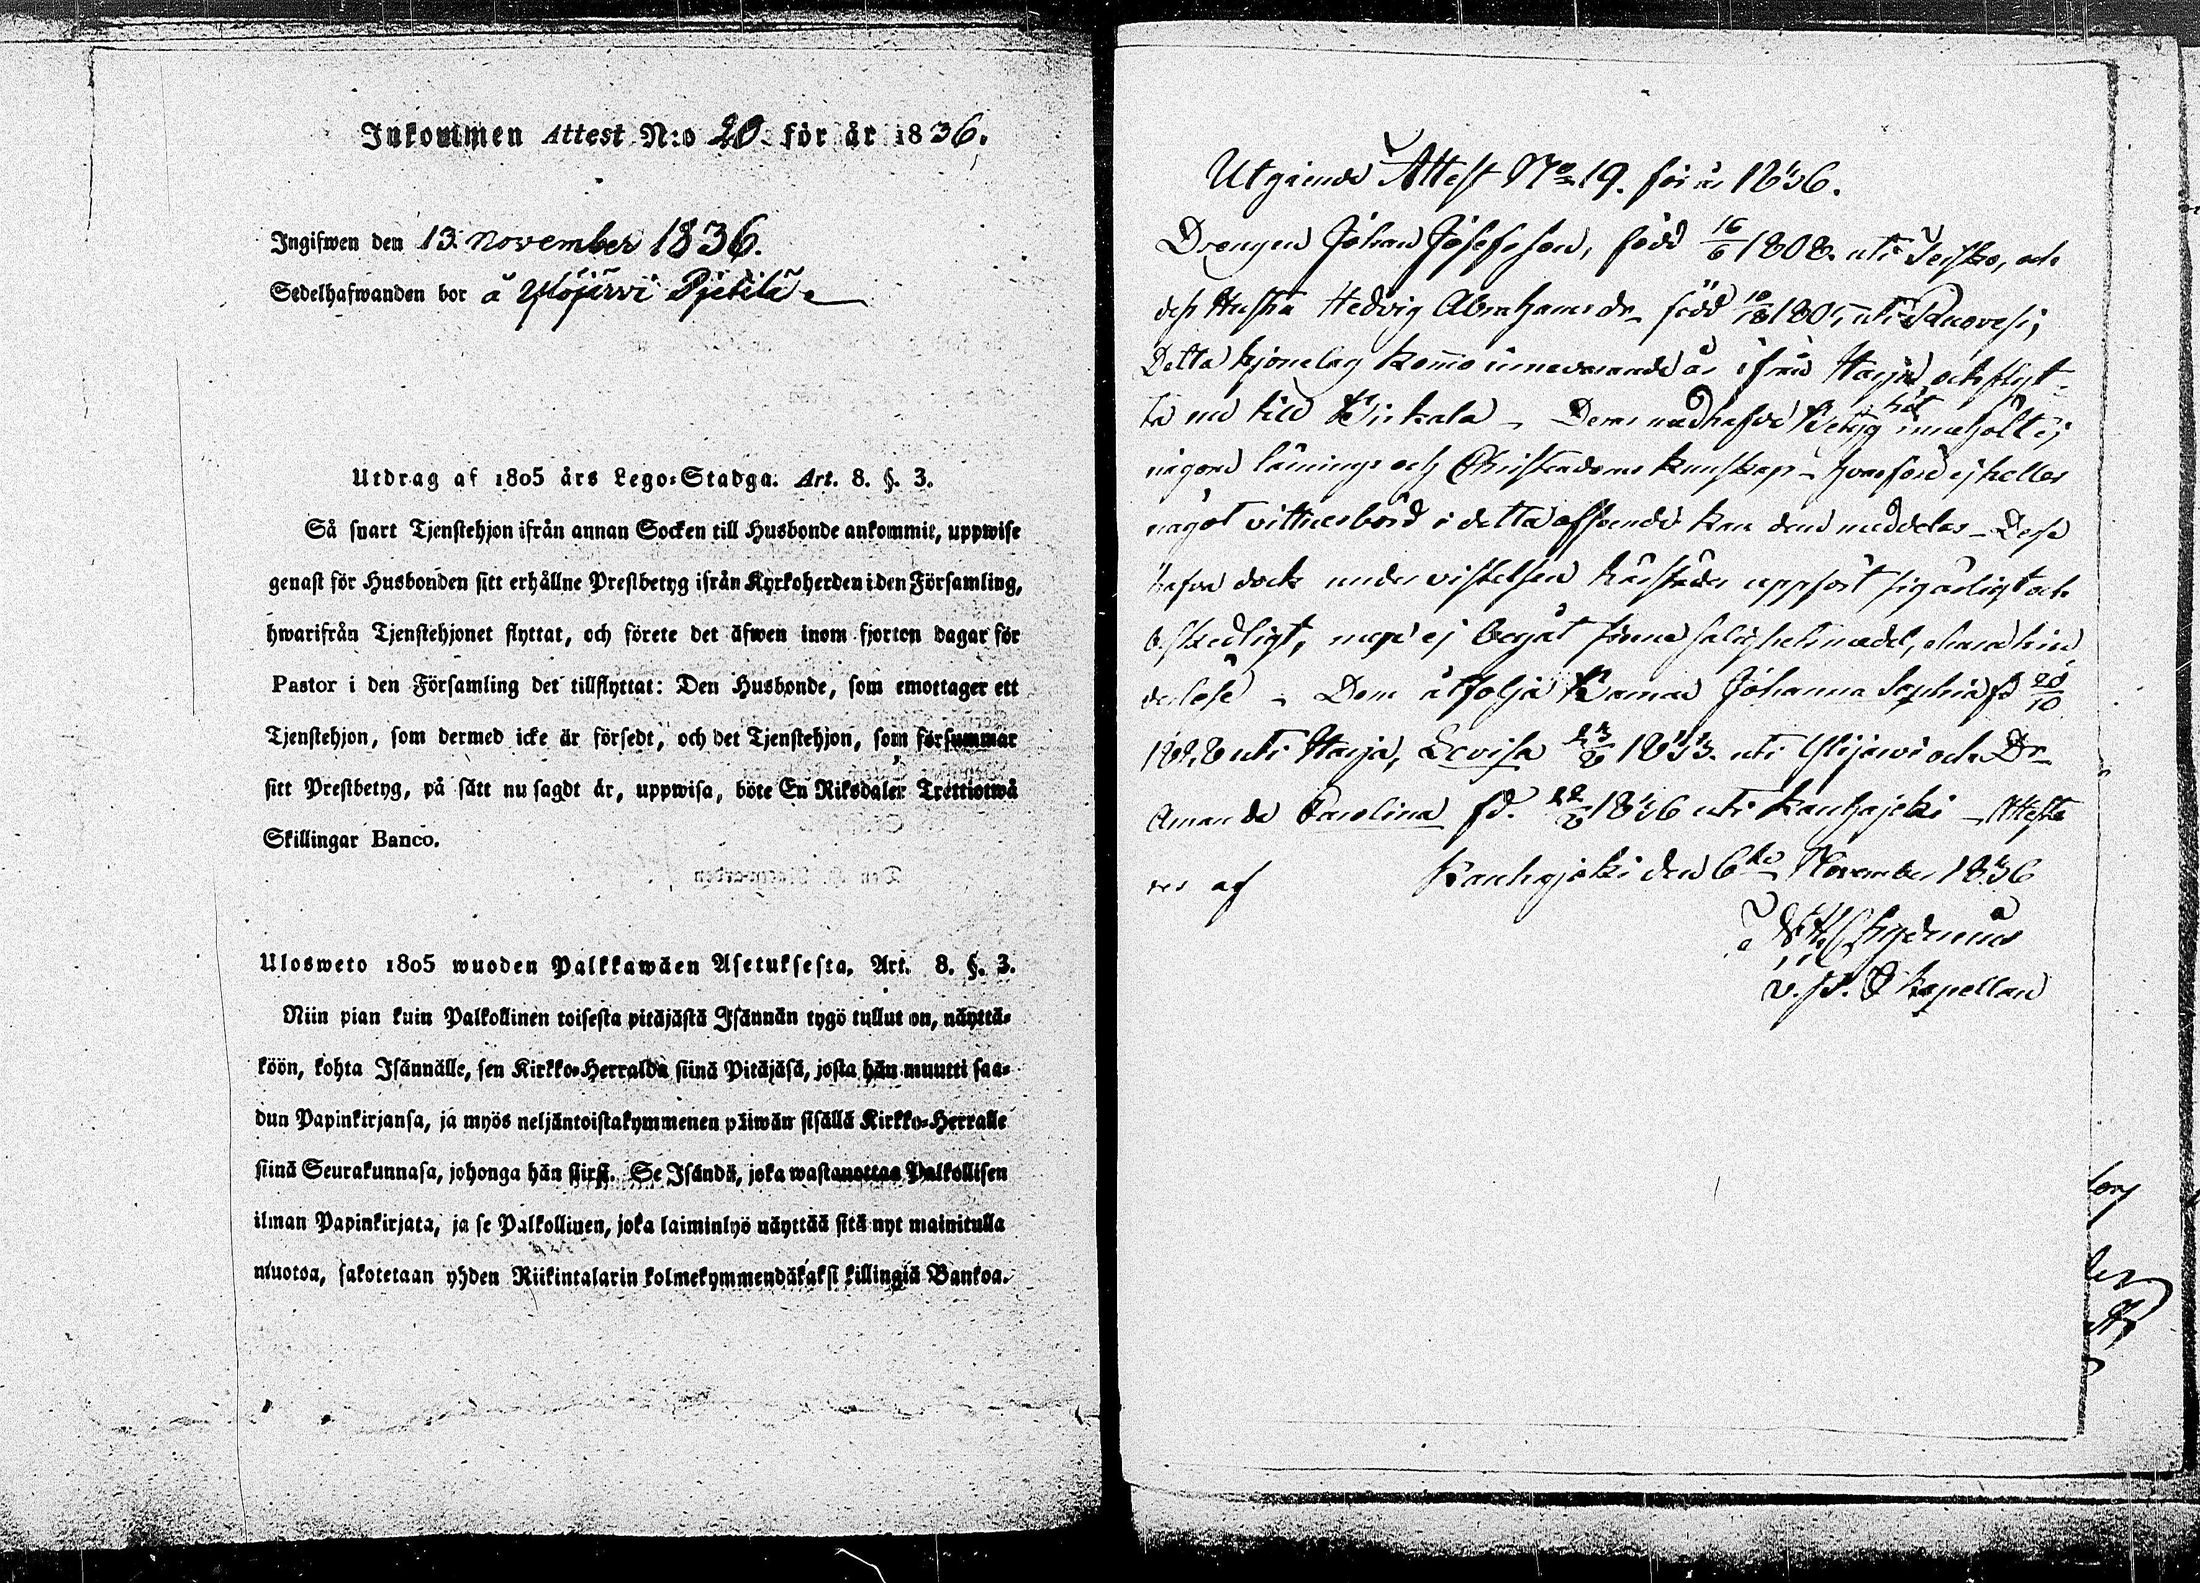 Inkommen Attest N:o 20. för år 1836.
Ingifwen den 13. November 1836.
Sedelhafwanden bor å Ylöjärvi Pjetilä
Utdrag af 1805 års Lego-Stadga. Art. 8. §. 3.
Så snart Tjenstehjon ifrån annan Socken till Husbonde ankommit, uppwise
genast för Husbonden sitt erhållne Prestbetyg ifrån Kyrkoherden i den Församling,
hwarifrån Tjenstehjonet flyttat, och förete det äfwen inom fjorton dagar för
Pastor i den Församling det tillflyttat: Den Husbonde, som emottager ett
Tjenstehjon, som dermed icke är försedt, och det Tjenstehjon, som försummar
sitt Prestbetyg, på sätt nu sagdt är, uppwisa, böte En Riksdaler Trettiotwå
Skillingar Banco.
Ulosweto 1805 wuoden Palkkawäen Asetuksesta. Art. 8. §. 3.
Niin pian kuin Palkollinen toisesta pitäjästä Isännän tygö tullut on, näyttä-
köön, kohta Isännälle, sen Kirkko-Herralda siinä Pitäjäsä, josta hän muutti saa-
dun Papinkirjansa, ja myös neljäntoistakymmenen päiwän sisällä Kirkko-Herralle
siinä Seurakunnasa, johonga hän siirsi. Se Isändä, joka wastanottaa Palkollisen
ilman Papinkirjata, ja se Palkollinen, joka laiminlyö näyttää sitä nyt mainitulla
muotoa, sakotetaan yhden Riikintalarin kolmekymmendäkaksi killingiä Bankoa.
Utgående Attest No 19. för år 1836.
Drengen Johan Josefsson, född 16/6 1808. uti Teisko, och
dess Hustru Hedvig Abrahamsdr född uti Ruovesi;
Detta hjonelag kommo innevarande år ifrån Harju och flyt-
ta nu till Birkala - Deras medhafde Betyg hit innehöllt ej
någon läsnings och Christendoms kunskap - hvarföre ej heller
något vittnesbörd i detta afseende kan dem meddelas - Desse
hafva dock under vistelsen härstädes uppfört sig ärligt och
beskedligt, men ej begåt sine salighetsmedel, äro hin
derlöse - Dem åtfölja Barnen Johanna Sophia fd 20/10
uti Harja, Lovisa 1833. uti Ylöjärvi och Dr
Amanda Carolina fd. 1836 uti Kauhajoki - Atteste
res af Kauhajoki den 6te November 1836
Chydenius
v. Kapellan